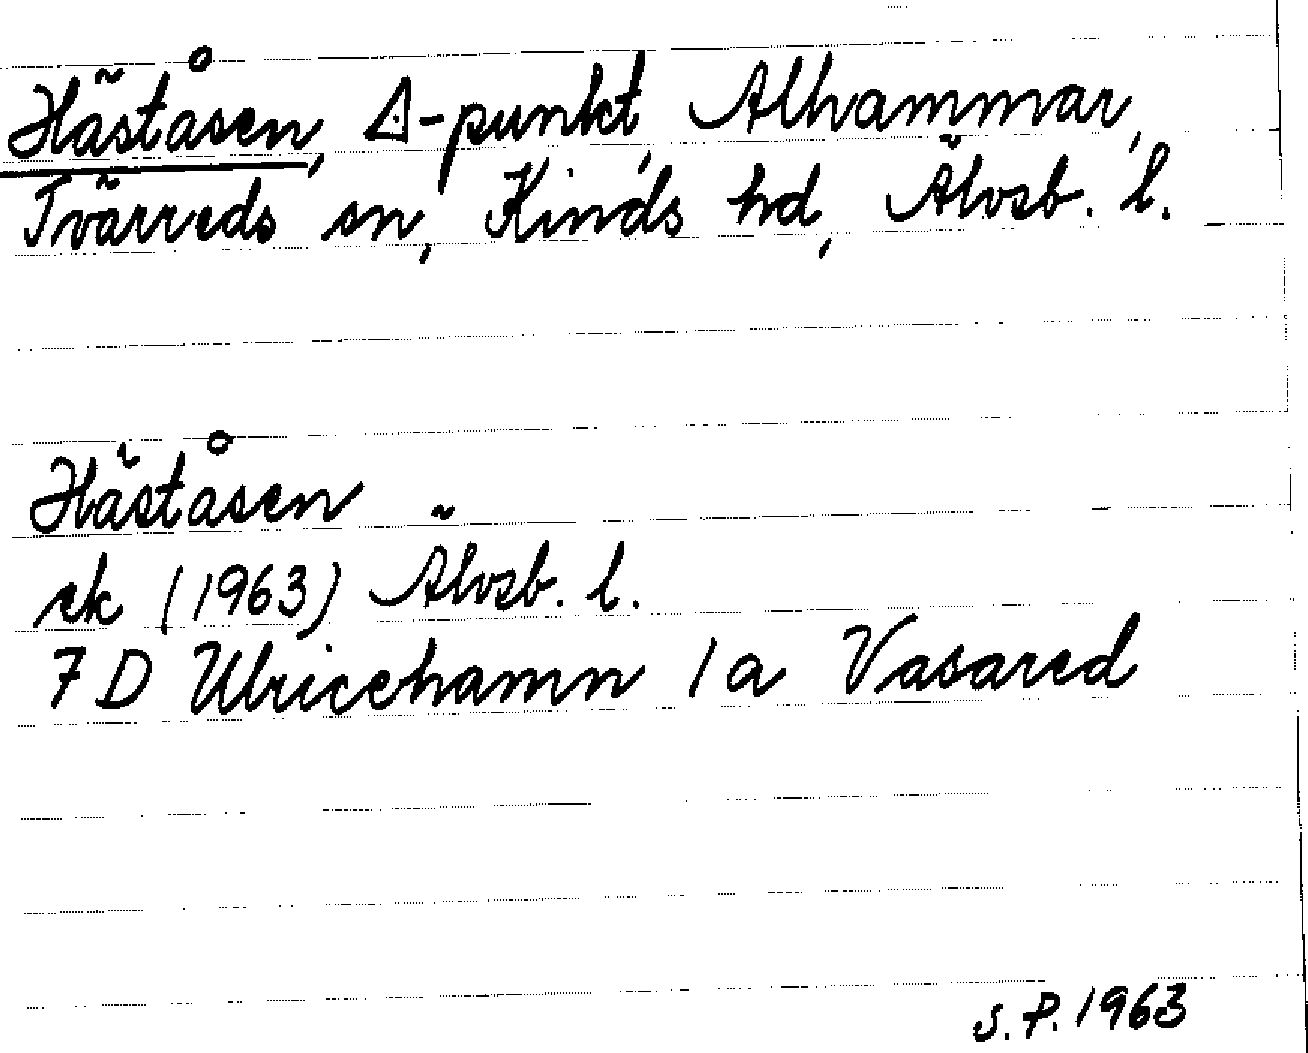 Häståsen, ∆-punkt, Alhammar,
Tvärreds sn, Kinds hd, Älvsb. l.
Häståsen
ek (1963) Älvsb. l.
7 D Ulricehamn 1 a Vasared
S.P. 1963